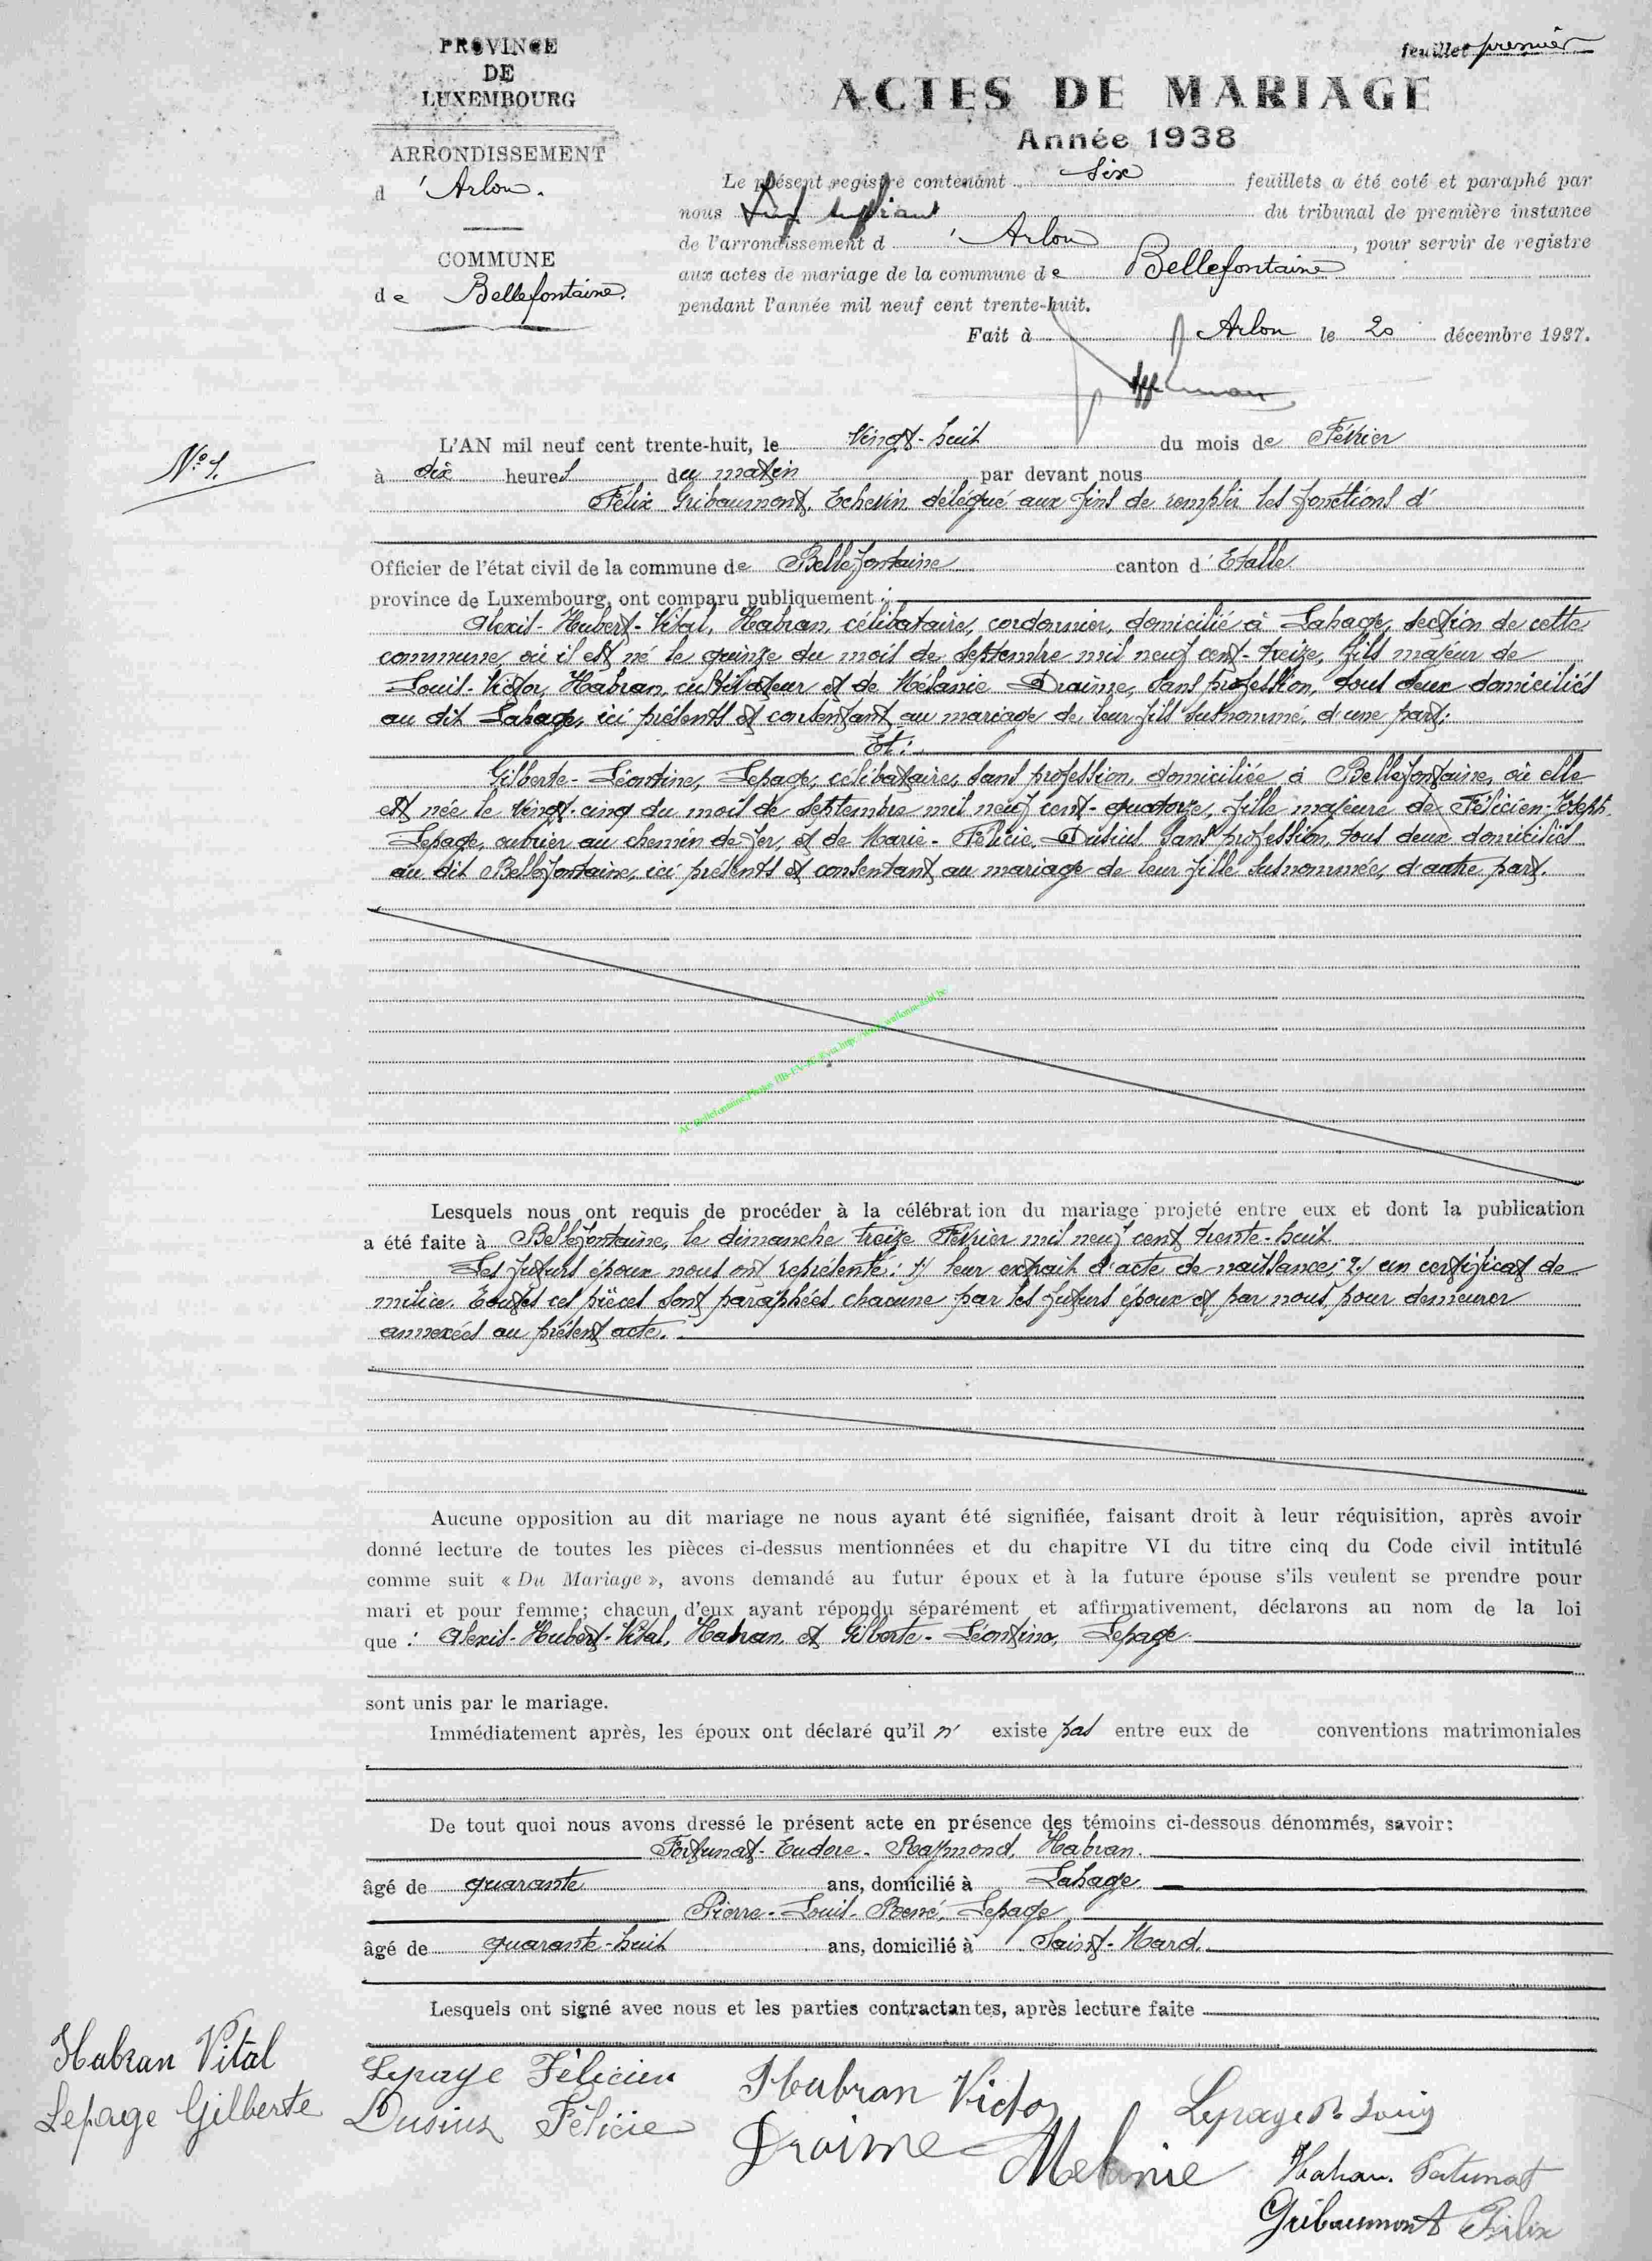 feuillet premier
PROVINCE
DE
LUXEMBOURG
ARRONDISSEMENT
d'Arlon.
COMMUNE
de Bellefontaine.
ACTES DE MARIAGE
Année 1938
Le présent registre contenant Six feuillets a été coté et paraphé par
nous du tribunal de première instance
de l'arrondissement d'Arlon, pour servir de registre
aux actes de mariage de la commune de Bellefontaine
pendant l'année mil neuf cent trente-huit.
Fait à Arlon le 20 décembre 1937.
N° 1.
L'AN mil neuf cent trente-huit, le vingt-huit du mois de Février
à dix heures du matin, par devant nous
Félix Gribaumont, Echevin délégué aux fins de remplir les fonctions d'
Officier de l'état civil de la commune de Bellefontaine canton d'Etalle
province de Luxembourg, ont comparu publiquement :
Alexis-Hubert-Vital, Habran, célibataire, cordonnier, domicilié à Lahage, section de cette
commune, où il est né le quinze du mois de Septembre mil neuf cent-treize, fils majeur de
Louis-Victor, Habran, cultivateur et de Mélanie Draime, sans profession, tous deux domiciliés
au dit Lahage, ici présents et consentant au mariage de leur fils susnommé, d'une part;
Et :
Gilberte-Léontine, Lepage, célibataire, sans profession, domiciliée à Bellefontaine, où elle
est née le vingt-cinq du mois de Septembre mil neuf cent-quatorze, fille majeure de Félicien-Joseph
Lepage, ouvrier au chemin de fer, et de Marie-Félicie, Dusius sans profession, tous deux domiciliés
au dit Bellefontaine, ici présents et consentant au mariage de leur fille susnommée, d'autre part.
Lesquels nous ont requis de procéder à la célébration du mariage projeté entre eux et dont la publication
a été faite à Bellefontaine, le dimanche treize Février mil neuf cent trente-huit.
Les futurs époux nous ont représenté : 1) leur extrait d'acte de naissance; 2) un certificat de
milice. Toutes ces pièces sont paraphées chacune par les futurs époux et par nous, pour demeurer
annexées au présent acte.
Aucune opposition au dit mariage ne nous ayant été signifiée, faisant droit à leur réquisition, après avoir
donné lecture de toutes les pièces ci-dessus mentionnées et du chapitre VI du titre cinq du Code civil intitulé
comme suit « Du Mariage », avons demandé au futur époux et à la future épouse s'ils veulent se prendre pour
mari et pour femme; chacun d'eux ayant répondu séparément et affirmativement, déclarons au nom de la loi
que : Alexis-Hubert-Vital, Habran et Gilberte-Léontine, Lepage
sont unis par le mariage.
Immédiatement après, les époux ont déclaré qu'il n' existe pas entre eux de conventions matrimoniales
De tout quoi nous avons dressé le présent acte en présence des témoins ci-dessous dénommés, savoir:
Fortunat-Eudore-Raymond, Habran.
âgé de quarante ans, domicilié à Lahage
Pierre-Louis-René, Lepage
âgé de quarante-huit ans, domicilié à Saint-Mard.
Lesquels ont signé avec nous et les parties contractantes, après lecture faite
Habran Vital
Lepage Gilberte
Lepage Félicien
Dusius Félicie
Habran Victor
Draime Melanie
Lepage P. Louis
Habran Fortunat
Gribaumont Félix